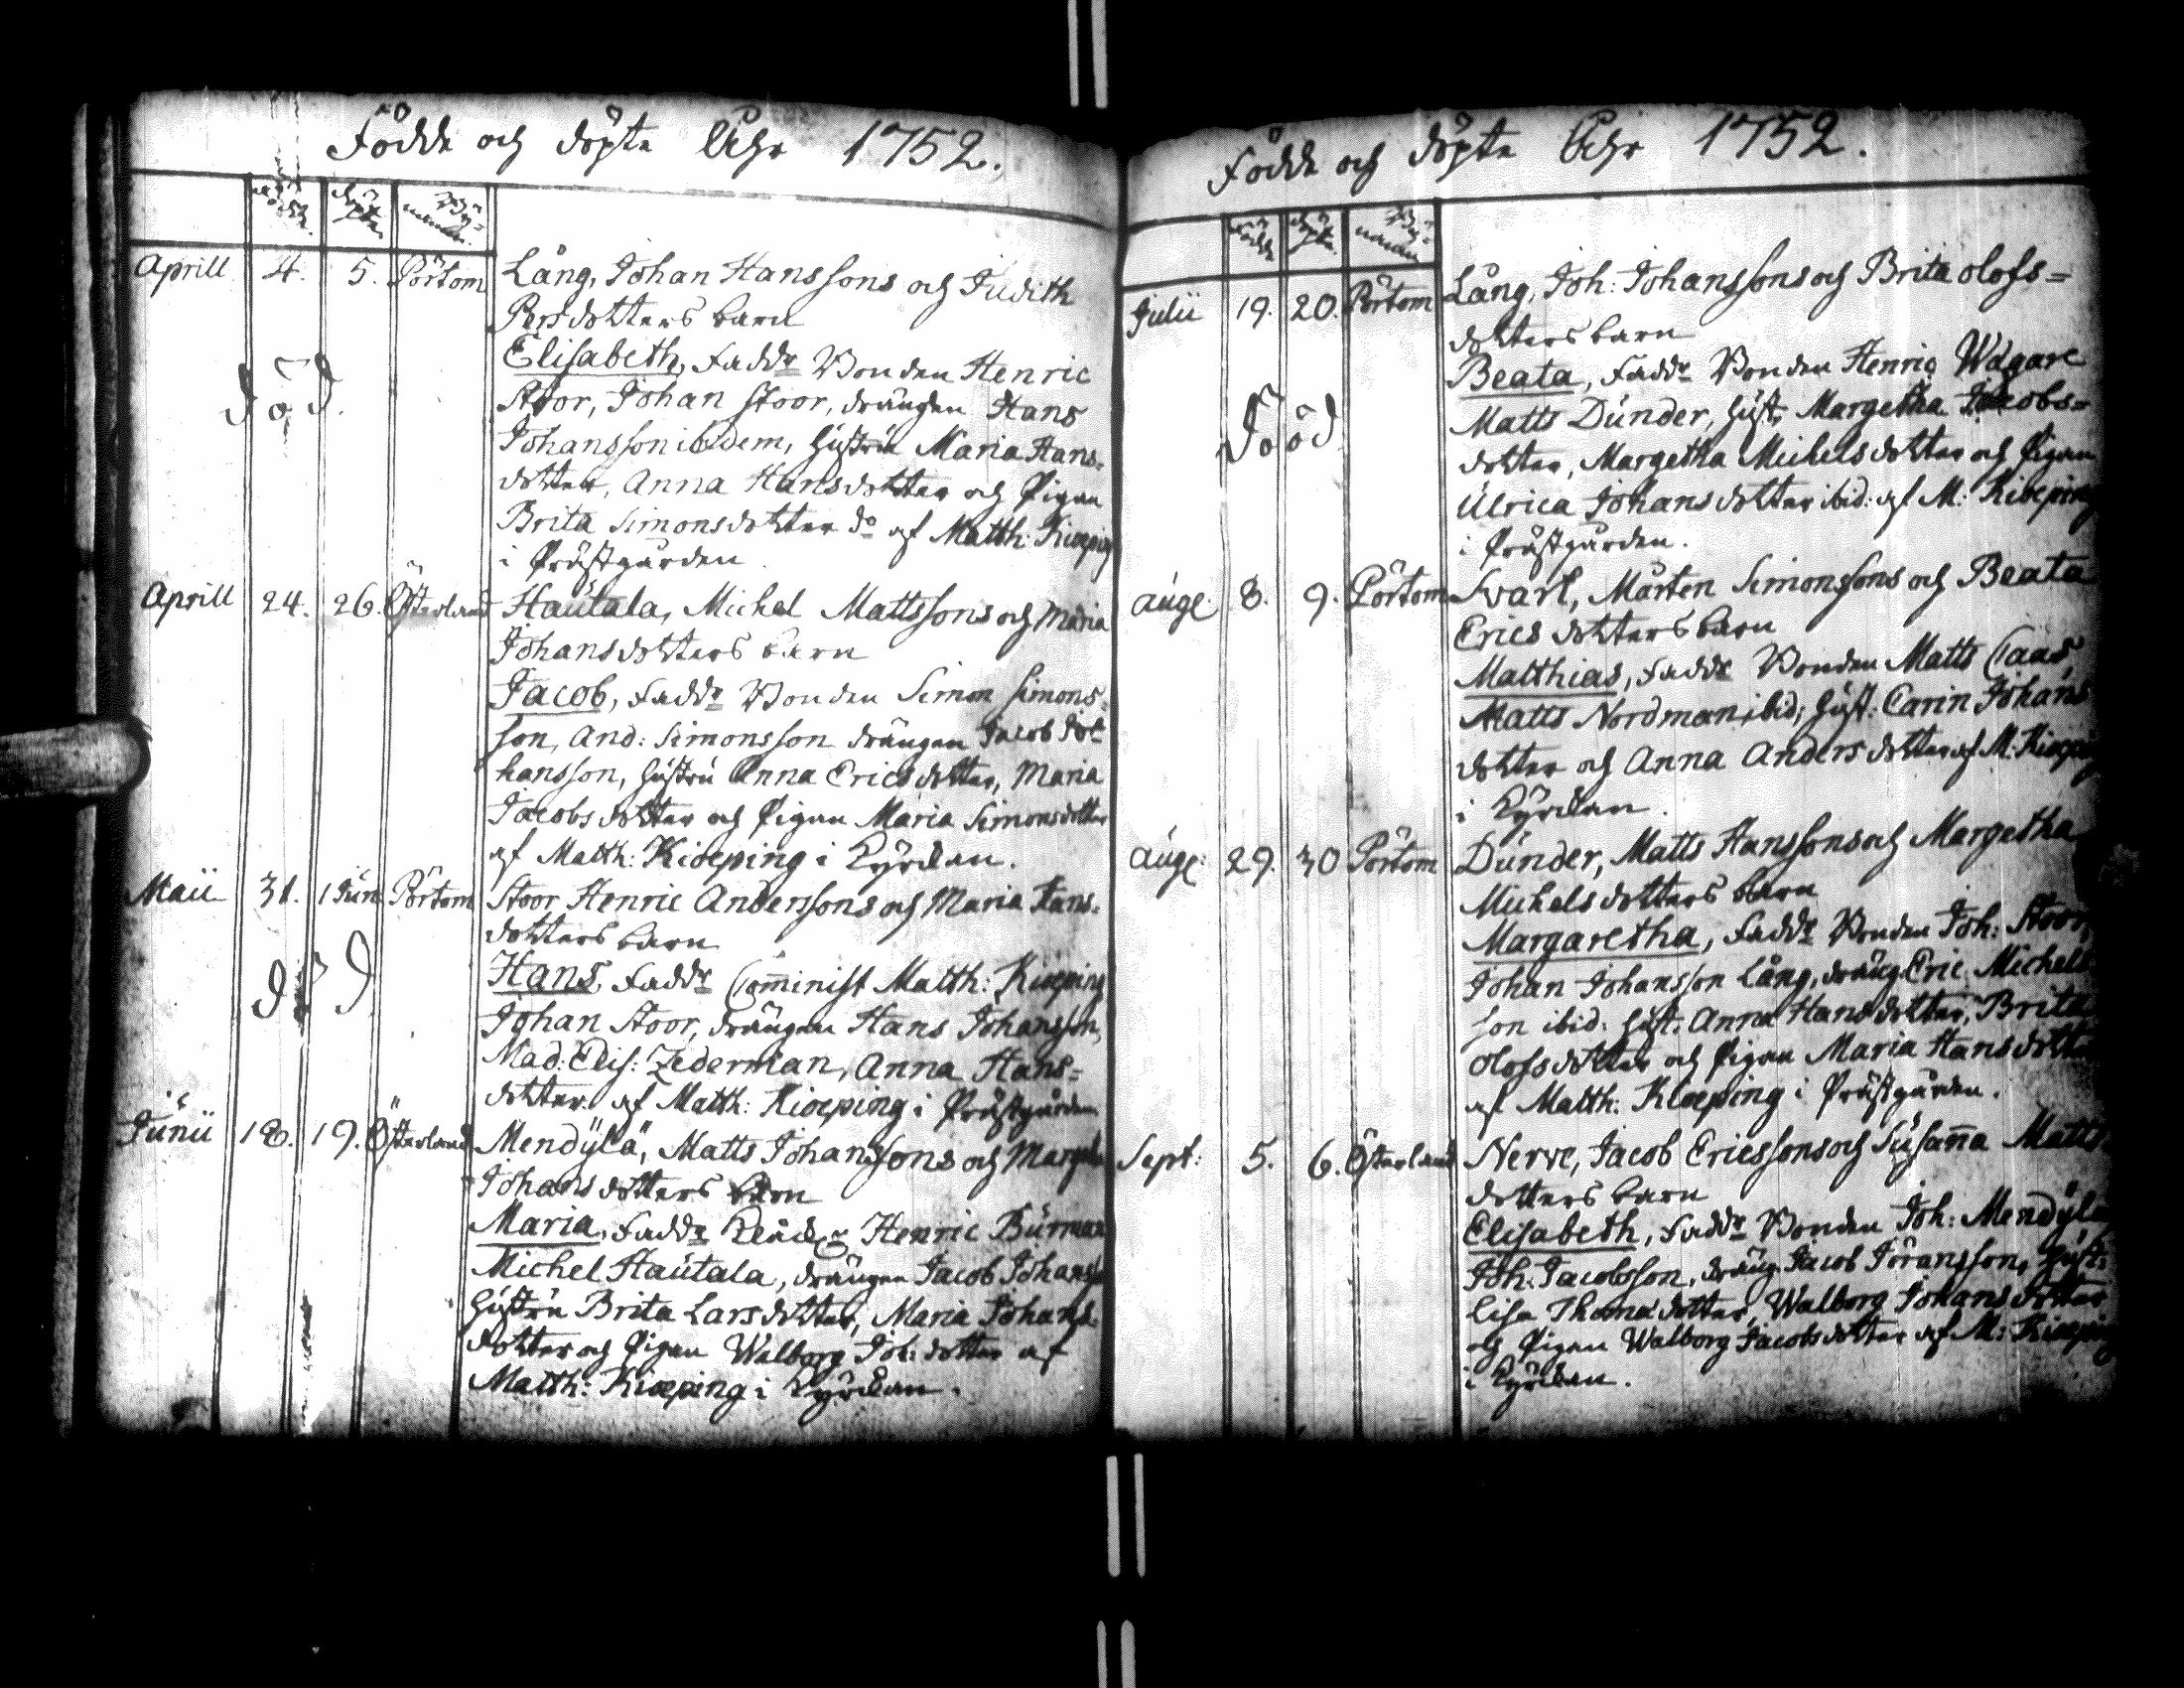 Födde och döpte Åhr 1752.
födde. döpte Bÿ=
namnen.
Aprill 4. 5. Pörtom Lång, Johan Hanssons och Judith
Persdotters barn
Elisabeth, Faddr Bonden Henric
Död. Stoor, Johan Stoor, drängen Hans
Johansson ibidem, hustru Maria Hans-
dotter, Anna Hansdotter och Pigan
Brita Simonsdotter do af Matth: Kioeping
i Prästgården.
Aprill 24. 26. Österland Hautala, Michel Mattssons och Maria
Johansdotters barn
Jacob, Faddr Bonden Simon Simons-
son, And: Simonsson drängen Jacob Jo-
hansson, hustru Anna Ericsdotter, Maria
Jacobsdotter och Pigan Maria Simonsdotter
af Matth: Kioeping i Kÿrckan.
Maii 31. 1 Jun. Pörtom Stoor Henric Anderssons och Maria Hans-
dotters barn
död Hans, Faddr Comminist Matth: Kioeping
Johan Stoor, drängen Hans Johansson,
Mad: Elis: Zederman, Anna Hans=
dotter. af Matth: Kioeping i Prästgården
Junii 18. 19. Österland Mendÿlä, Matts Johanssons och Margeta
Johansdotters barn
Maria, Faddr Henric Burman
Michel Hautala, drängen Jacob Johansson
hustru Brita Larsdotter, Maria Johans-
dotter och Pigan Walborg Joh: dotter af
Matth: Kioeping i Kÿrckan.
Födde och döpte Åhr 1752.
födde döpte Bÿ=
namnen
Julii 19. 20. Pörtom Lång, Joh: Johanssons och Brita olofs=
dotters barn
Beata, Faddr Bonden Henric Wägare
Död Matts Dunder, hust: Margetha Jacobs=
dotter, Margetha Michelsdotter och Pigan
Ulrica Johansdotter ibid: af M: Kioeping
i Prästgården.
Aug: 8. 9. Pörtom Svart, Mårten Simonssons och Beata
Erics dotters barn
Matthias, Faddr Bonden Matts Caas,
Matts Nordman ibid; hust: Carin Johans
dotter och Anna Anders dotter af M: Kioeping
i Kÿrckan.
Aug: 29. 30 Pörtom Dunder, Matts Hanssons och Margetha
Michelsdotters barn
Margaretha, Faddr Bonden Joh: Stoor,
Johan Johansson Lång, dräng Eric Michels
son ibid: hust: Anna Hansdotter, Brita
Olofsdotter och Pigan Maria Hansdotter
af Matth: Kioeping i Prästgården.
Sept: 5. 6. Österland Nerve, Jacob Ericssons och Susanna Matts
dotters barn
Elisabeth, Faddr Bonden Joh: Mendÿlä
Joh: Jacobsson, dräng Jacob Göransson, hust:
Lisa Thomædotter, Walborg Johansdotter
och Pigan Walborg Jacobsdotter af M: Kioeping
i Kÿrckan.